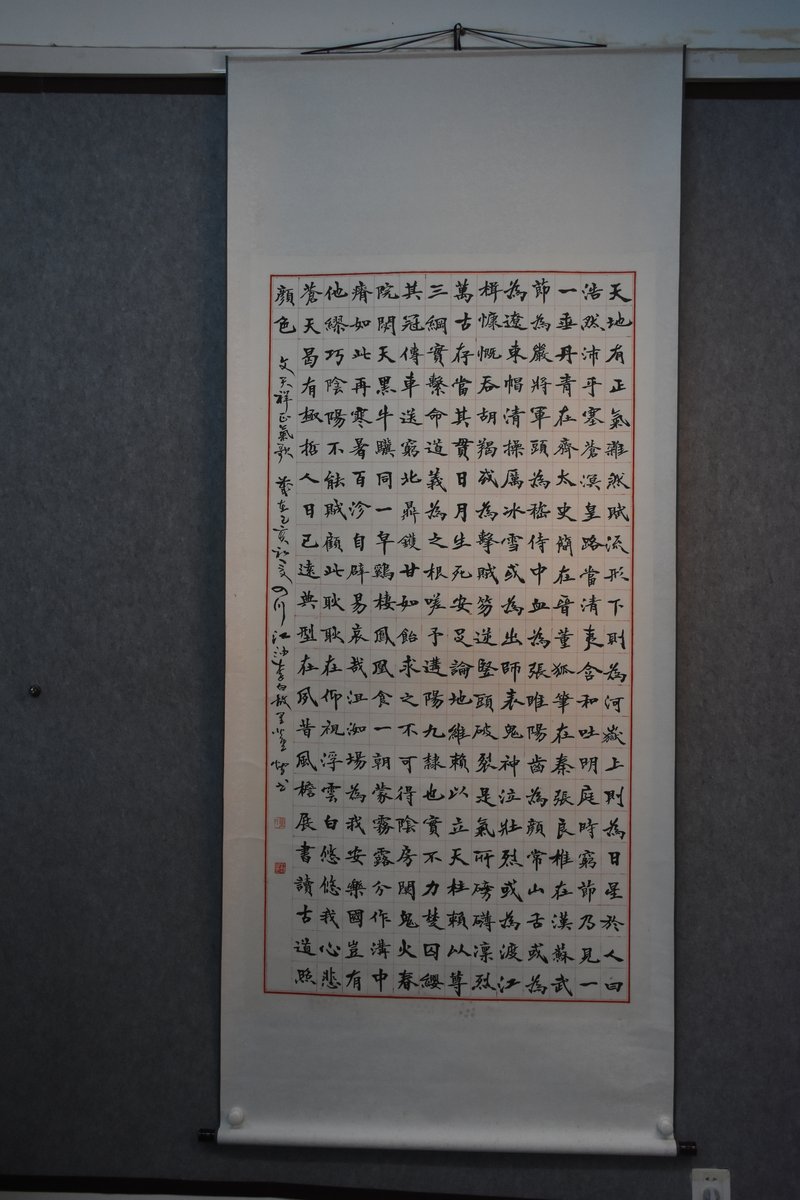 天地有正氣雜然賦流形下則為河嶽上則為日星於人曰
浩然沛乎塞蒼溟皇路當清夷含和吐明庭時窮節乃見一
一垂丹青在齊太史簡在晉董狐筆在秦張良椎在漢蘇武
節為嚴將軍頭為嵇侍中血為張睢陽齒為顏常山舌或為
為遼東帽清操厲冰雪或為出師表鬼神泣壯烈或為渡江
楫慷慨吞胡羯或為擊賊笏逆豎頭破裂是氣所磅礴凜烈
萬古存當其貫日月生死安足論地維賴以立天柱賴以尊
三綱實繫命道義為之根嗟予遘陽九隸也實不力楚囚纓
其冠傳車送窮北鼎鑊甘如飴求之不可得陰房闃鬼火春
院閟天黑牛驥同一皁鷄棲鳳凰食一朝蒙霧露分作溝中
瘠如此再寒暑百沴自辟易哀哉沮洳場為我安樂國豈有
他繆巧陰陽不能賊顧此耿耿在仰視浮雲白悠悠我心悲
蒼天曷有極哲人日已遠典型在夙昔風檐展書讀古道照
顏色
文天祥正氣歌 歲在 亥初夏四川江油李白故里 書